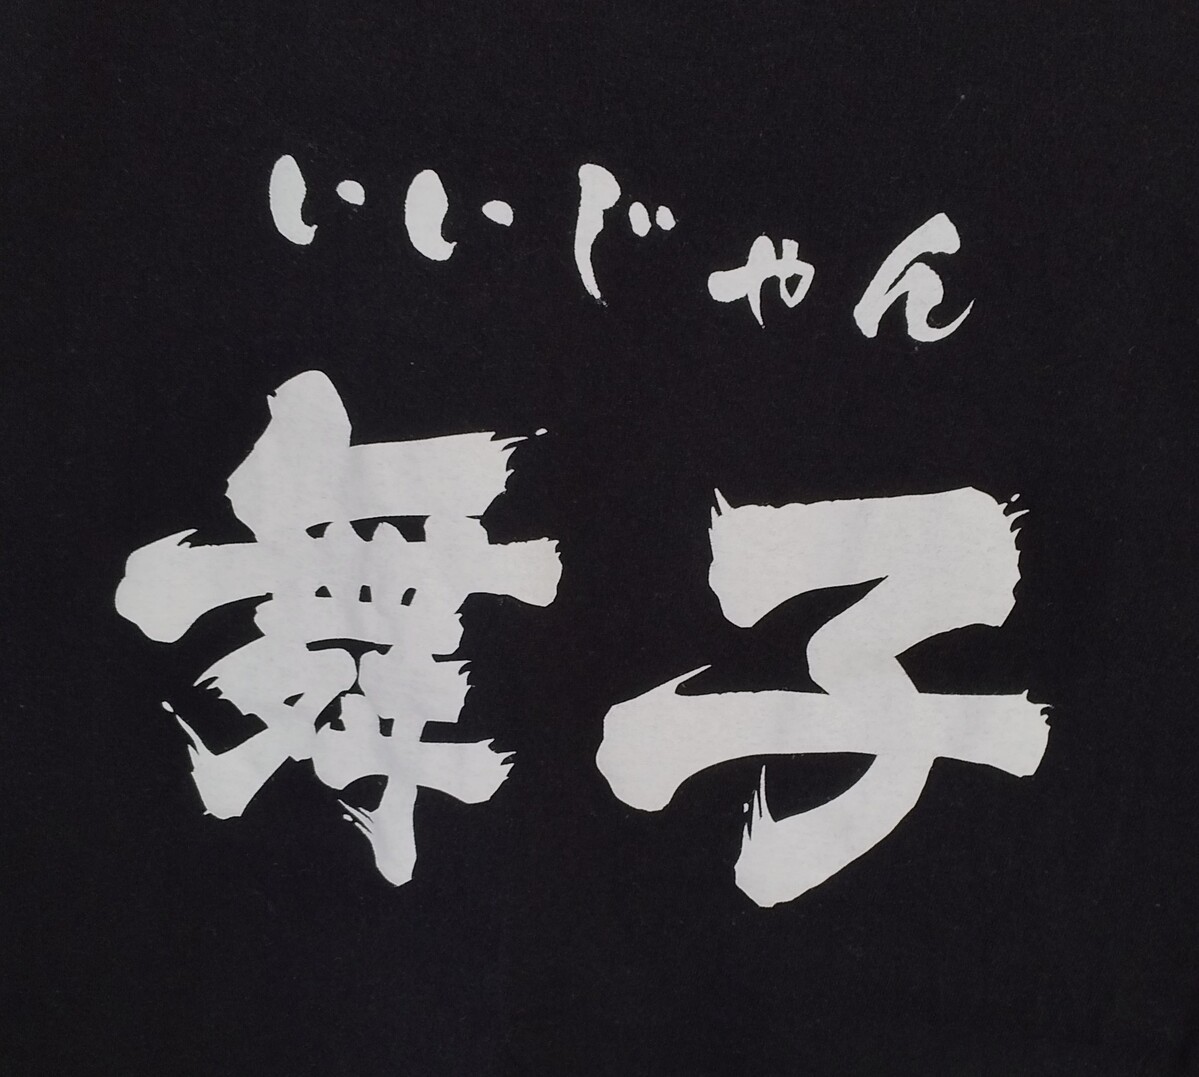 いいじゃん
舞子